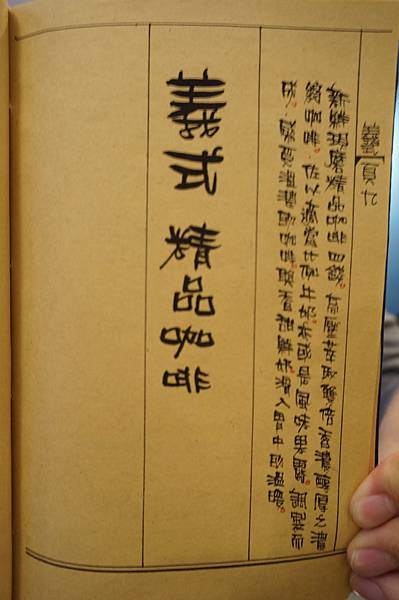 義頁
新鮮現磨精品咖啡四錢。高壓萃取雙倍香濃醇厚之濃
縮咖啡。佐以適當比例牛奶亦或是風味果醬。調製而
成。感受溫潤的咖啡與香甜鮮奶滑入胃中的溫暖。
義式 精品咖啡